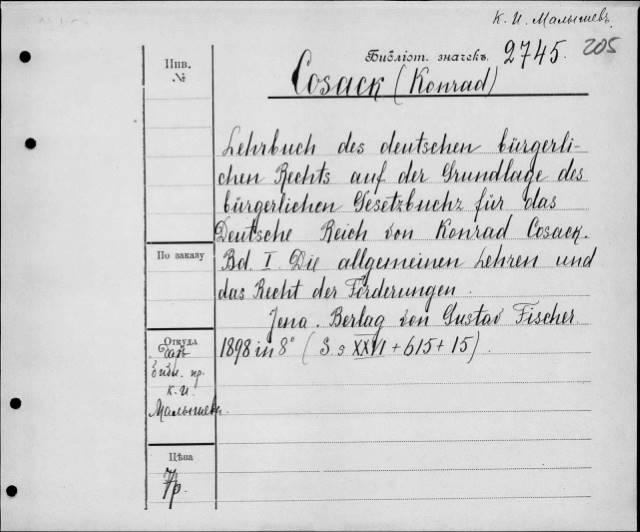 К. И. Малышевъ.
Библіот. значекъ. 2745. 205
Инв. №
Cosack (Konrad)
Lehrbuch des deutschen bürgerli-
chen Rechts auf der Grundlage des
bürgerlichen Gesetzbuchz für das
Deutsche Reich von Konrad Cosack.
По заказу
Bd I. Die allgemeinen Lehren und
das Recht der Förderungen.
Jena. Berlag von Gustav Fischer.
1898 in 8° (S. 9 XXVI + 615 + 15).
Откуда
Библ. пр.
К. И.
Малышевъ.
Цѣва
7р.